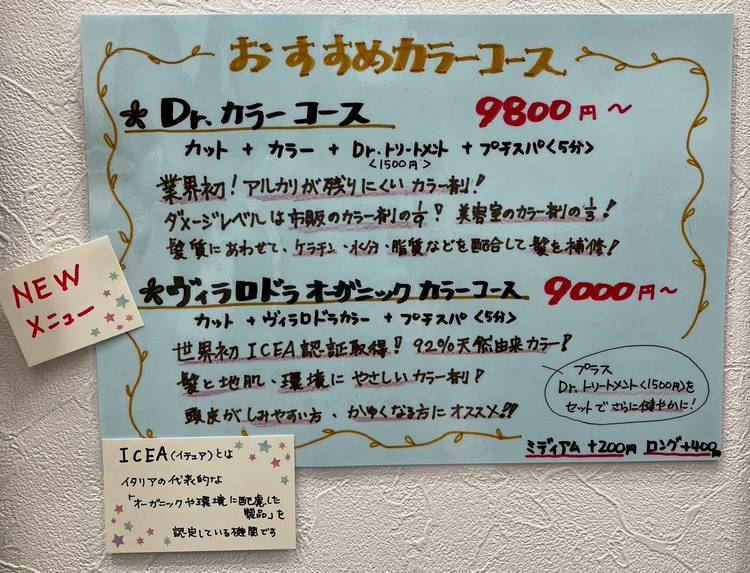 おすすめカラーコース
* Dr.カラーコース 9800円〜
カット + カラー + Dr.トリートメント + プチスパ<5分>
<1500円>
業界初!アルカリが残りにくいカラー剤!
ダメージレベルは市販のカラー剤の! 美容室のカラー剤の!
髪質にあわせて、ケラチン・水分・脂質などを配合して髪を補修!
NEW
メニュー
*ヴィラロドラオーガニックカラーコース 9000円〜
カット + ヴィラロドラカラー + プチスパ<5分>
世界初ICEA認証取得! 92%天然由来カラー!
髪と地肌、環境にやさしいカラー剤!
頭皮がしみやすい方、かゆくなる方にオススメ!!
プラス
Dr.トリートメント<1500円>を
セットでさらに健やかに!
ミディアム+200円 ロング+400円
ICEA(イチェア)とは
イタリアの代表的な
「オーガニックや環境に配慮した
製品」を
認定している機関です